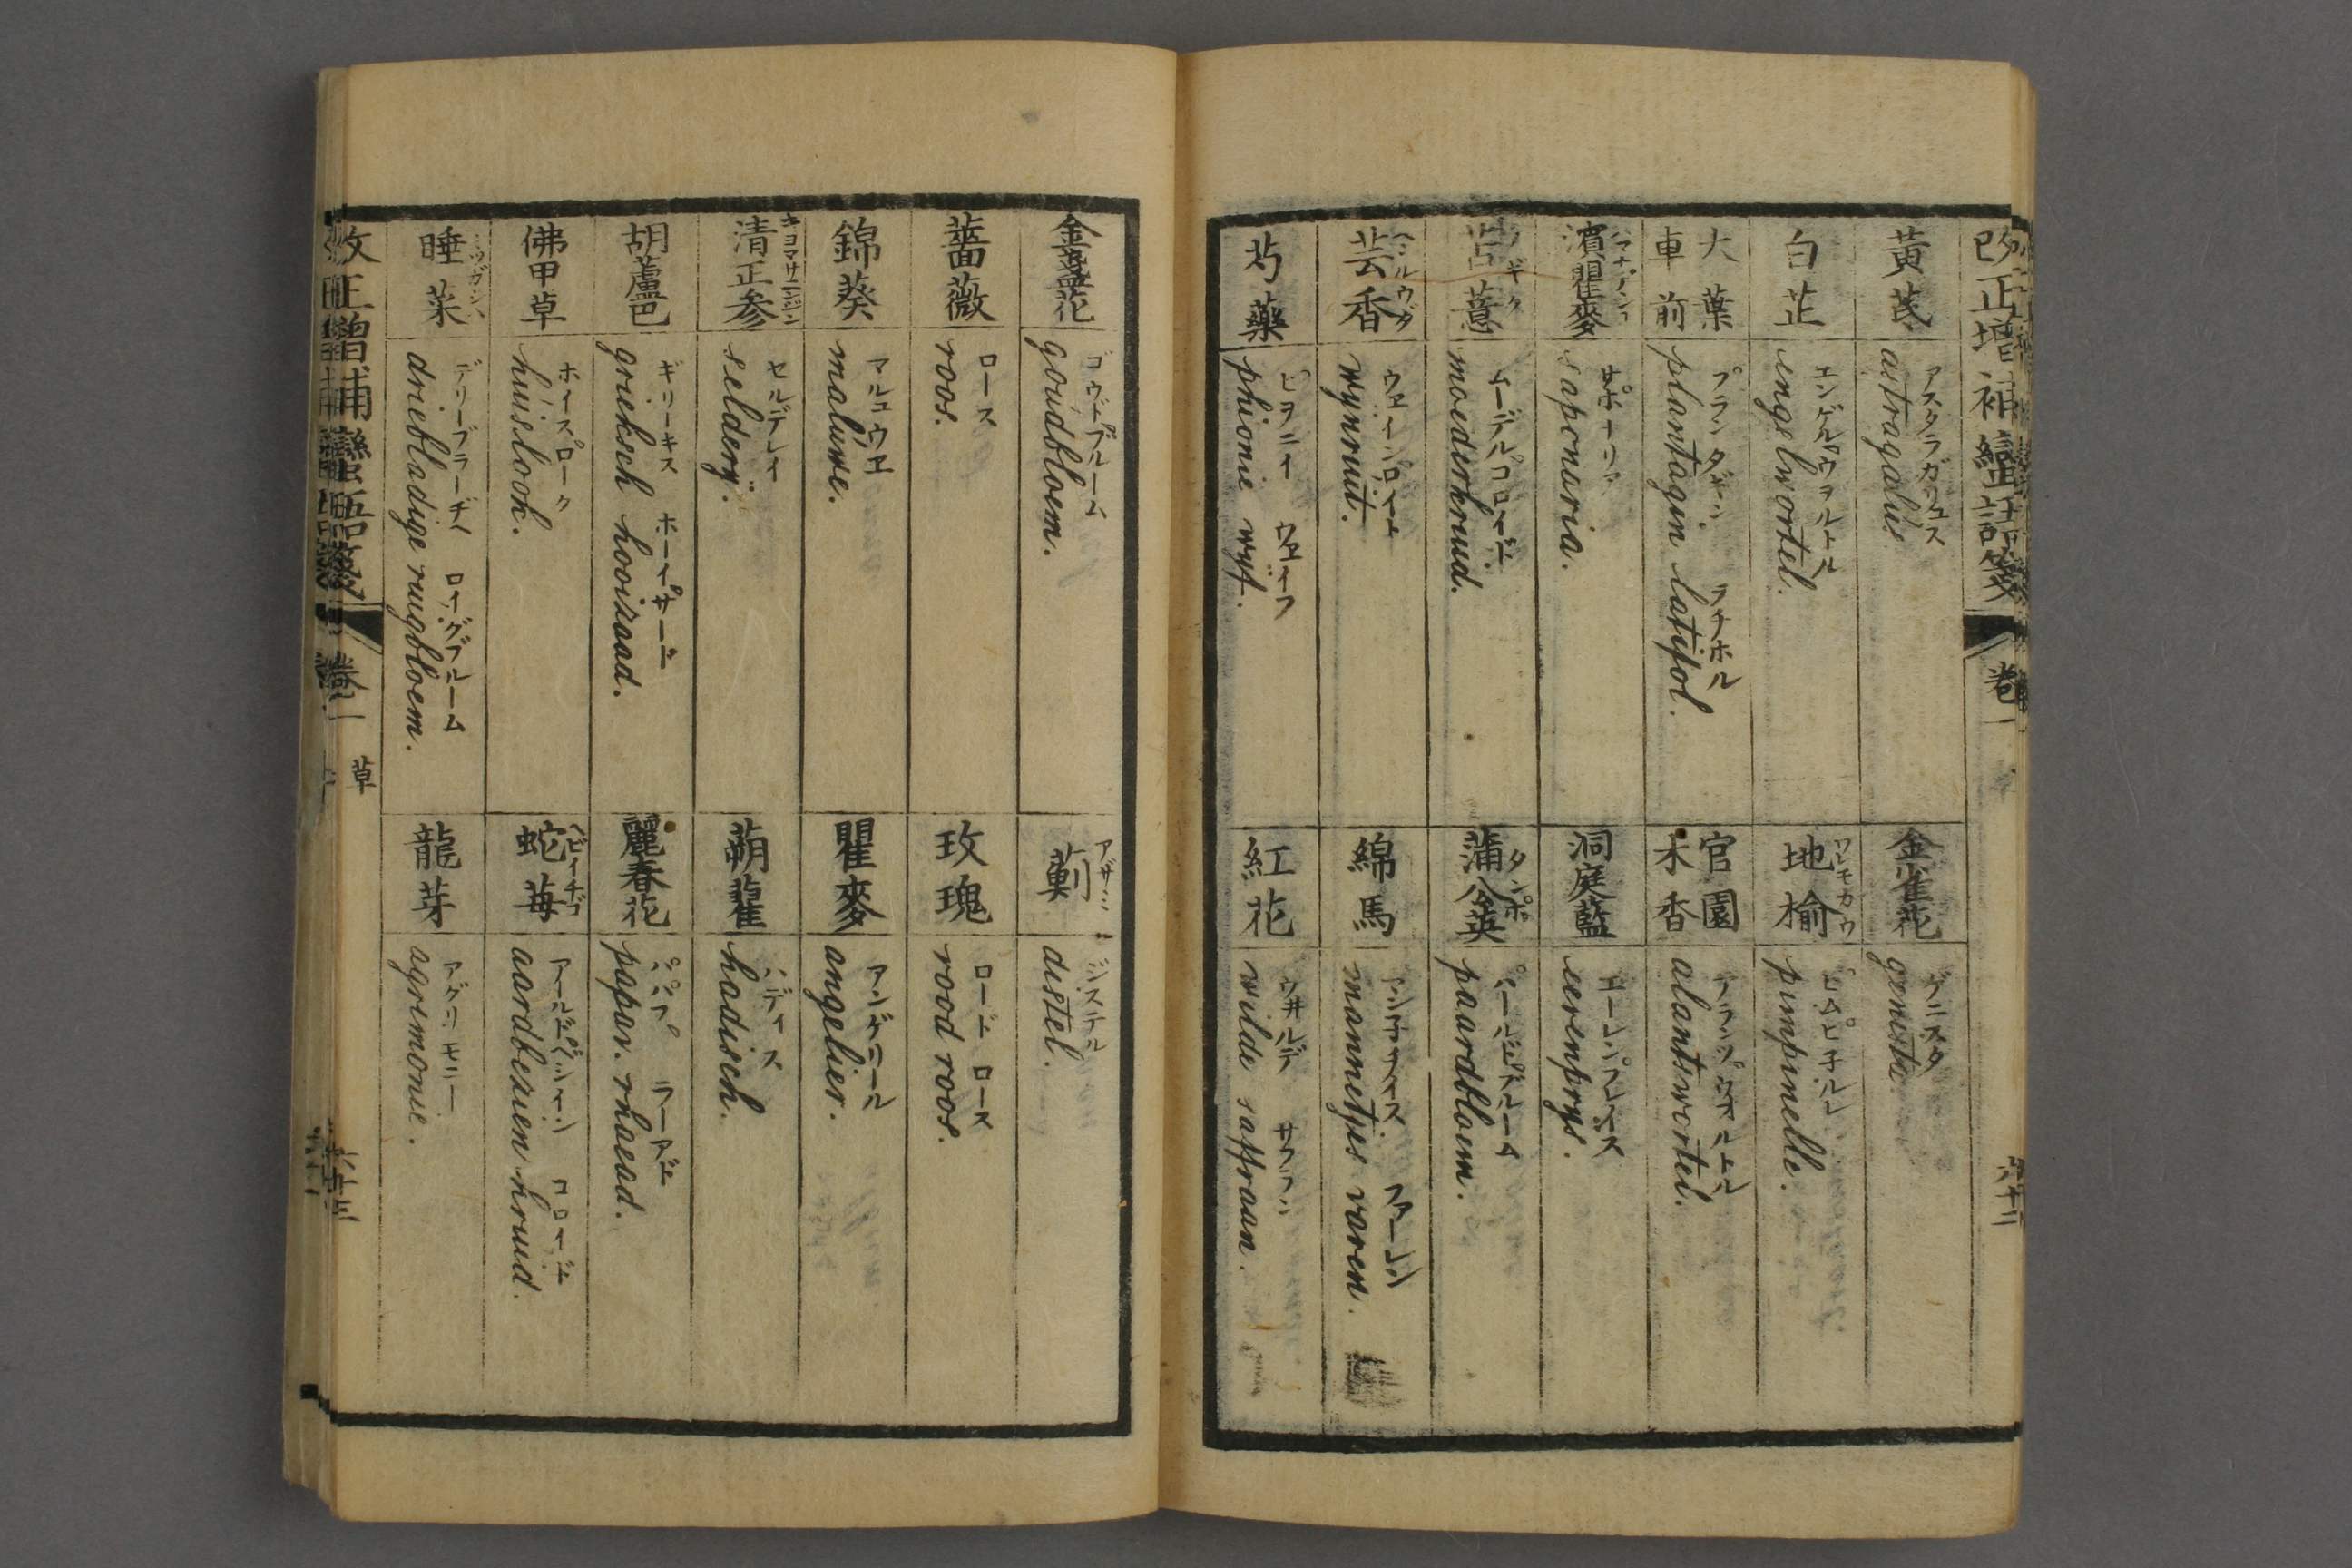 改正増補蠻語箋
卷一
六十二
黃芪
アスタラガリュス
astragalus.
白芷
エンゲルウヲルトル
engelwortel.
大葉車前
プランタギン ラチホル
plantagin latifol.
濱瞿麥
サポナーリア
saponaria.
苦薏
ノギク
ムーデルコロイド
moederkruid.
芸香
ヘンルウダ
ウェインロイト
wynruit.
芍藥
ピヲニイ ウェイフ
phionie wyf.
金雀花
ゲニスタ
genista.
地榆
ワレモカウ
ピムピ子ルレ
pimpinelle.
官園木香
アランツウヲルトル
alantswortel.
洞庭藍
エーレンプレイス
eerenprys.
蒲公英
タンポポ
パールドブルーム
paardbloem.
綿馬
マン子チイス ファーレン
mannetjes varen.
紅花
ウヰルデ サフラン
wilde saffraan.
金盞花
ゴウドブルーム
goudbloem.
薔薇
ロース
roos.
錦葵
マルュウエ
maluwe.
清正参
キヨマサニンジン
セルデレイ
seldery.
胡蘆巴
ギリーキス ホーイサード
grieksch hooizaad.
佛甲草
ホイスローク
huislook.
睡菜
ミツガシハ
デリーブラーヂヘ ロイグブルーム
driebladige ruigbloem.
薊
アザミ
ジステル
distel.
玫瑰
ロード ロース
rood roos.
瞿麥
アンゲリール
angelier.
蒴藋
ハディス
hadisch.
麗春花
パパフ ラーアド
papav. rhoead.
蛇苺
ヘビイチゴ
アールドベシイン コロイド
aardbezien kruid.
龍芽
アグリモニー
agrimonie.
改正增補蠻語箋
卷一
草
六十三